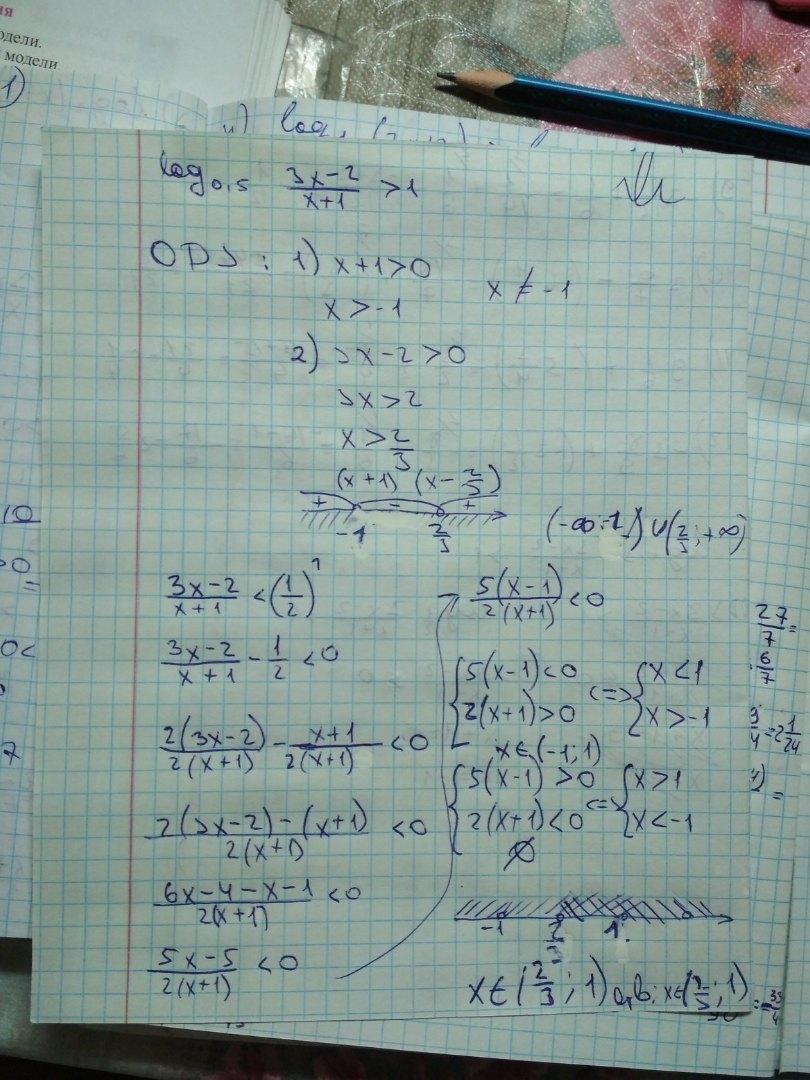 ия
одели.
модели
1)
log₀,₅ (3x-2)/(x+1) > 1
ОДЗ: 1) x+1>0
x ≠ -1
x > -1
2) 3x-2>0
3x>2
x > 2/3
(x+1) (x - 2/3)
+ - +
-1 2/3
(-∞;-1) ∪ (2/3; +∞)
(3x-2)/(x+1) < (1/2)¹
(3x-2)/(x+1) - 1/2 < 0
2(3x-2)/2(x+1) - (x+1)/2(x+1) < 0
(2(3x-2)-(x+1))/2(x+1) < 0
(6x-4-x-1)/2(x+1) < 0
(5x-5)/2(x+1) < 0
5(x-1)/2(x+1) < 0
{5(x-1)<0 <=> {x<1
{2(x+1)>0 {x>-1
x∈(-1;1)
{5(x-1)>0 <=> {x>1
{2(x+1)<0 {x<-1
∅
-1 2/3 1
x∈(2/3; 1) отв: x∈(2/3; 1)
10
>0
=
0<
7
27/7 =
6/7
3/4 = 2 1/24
=